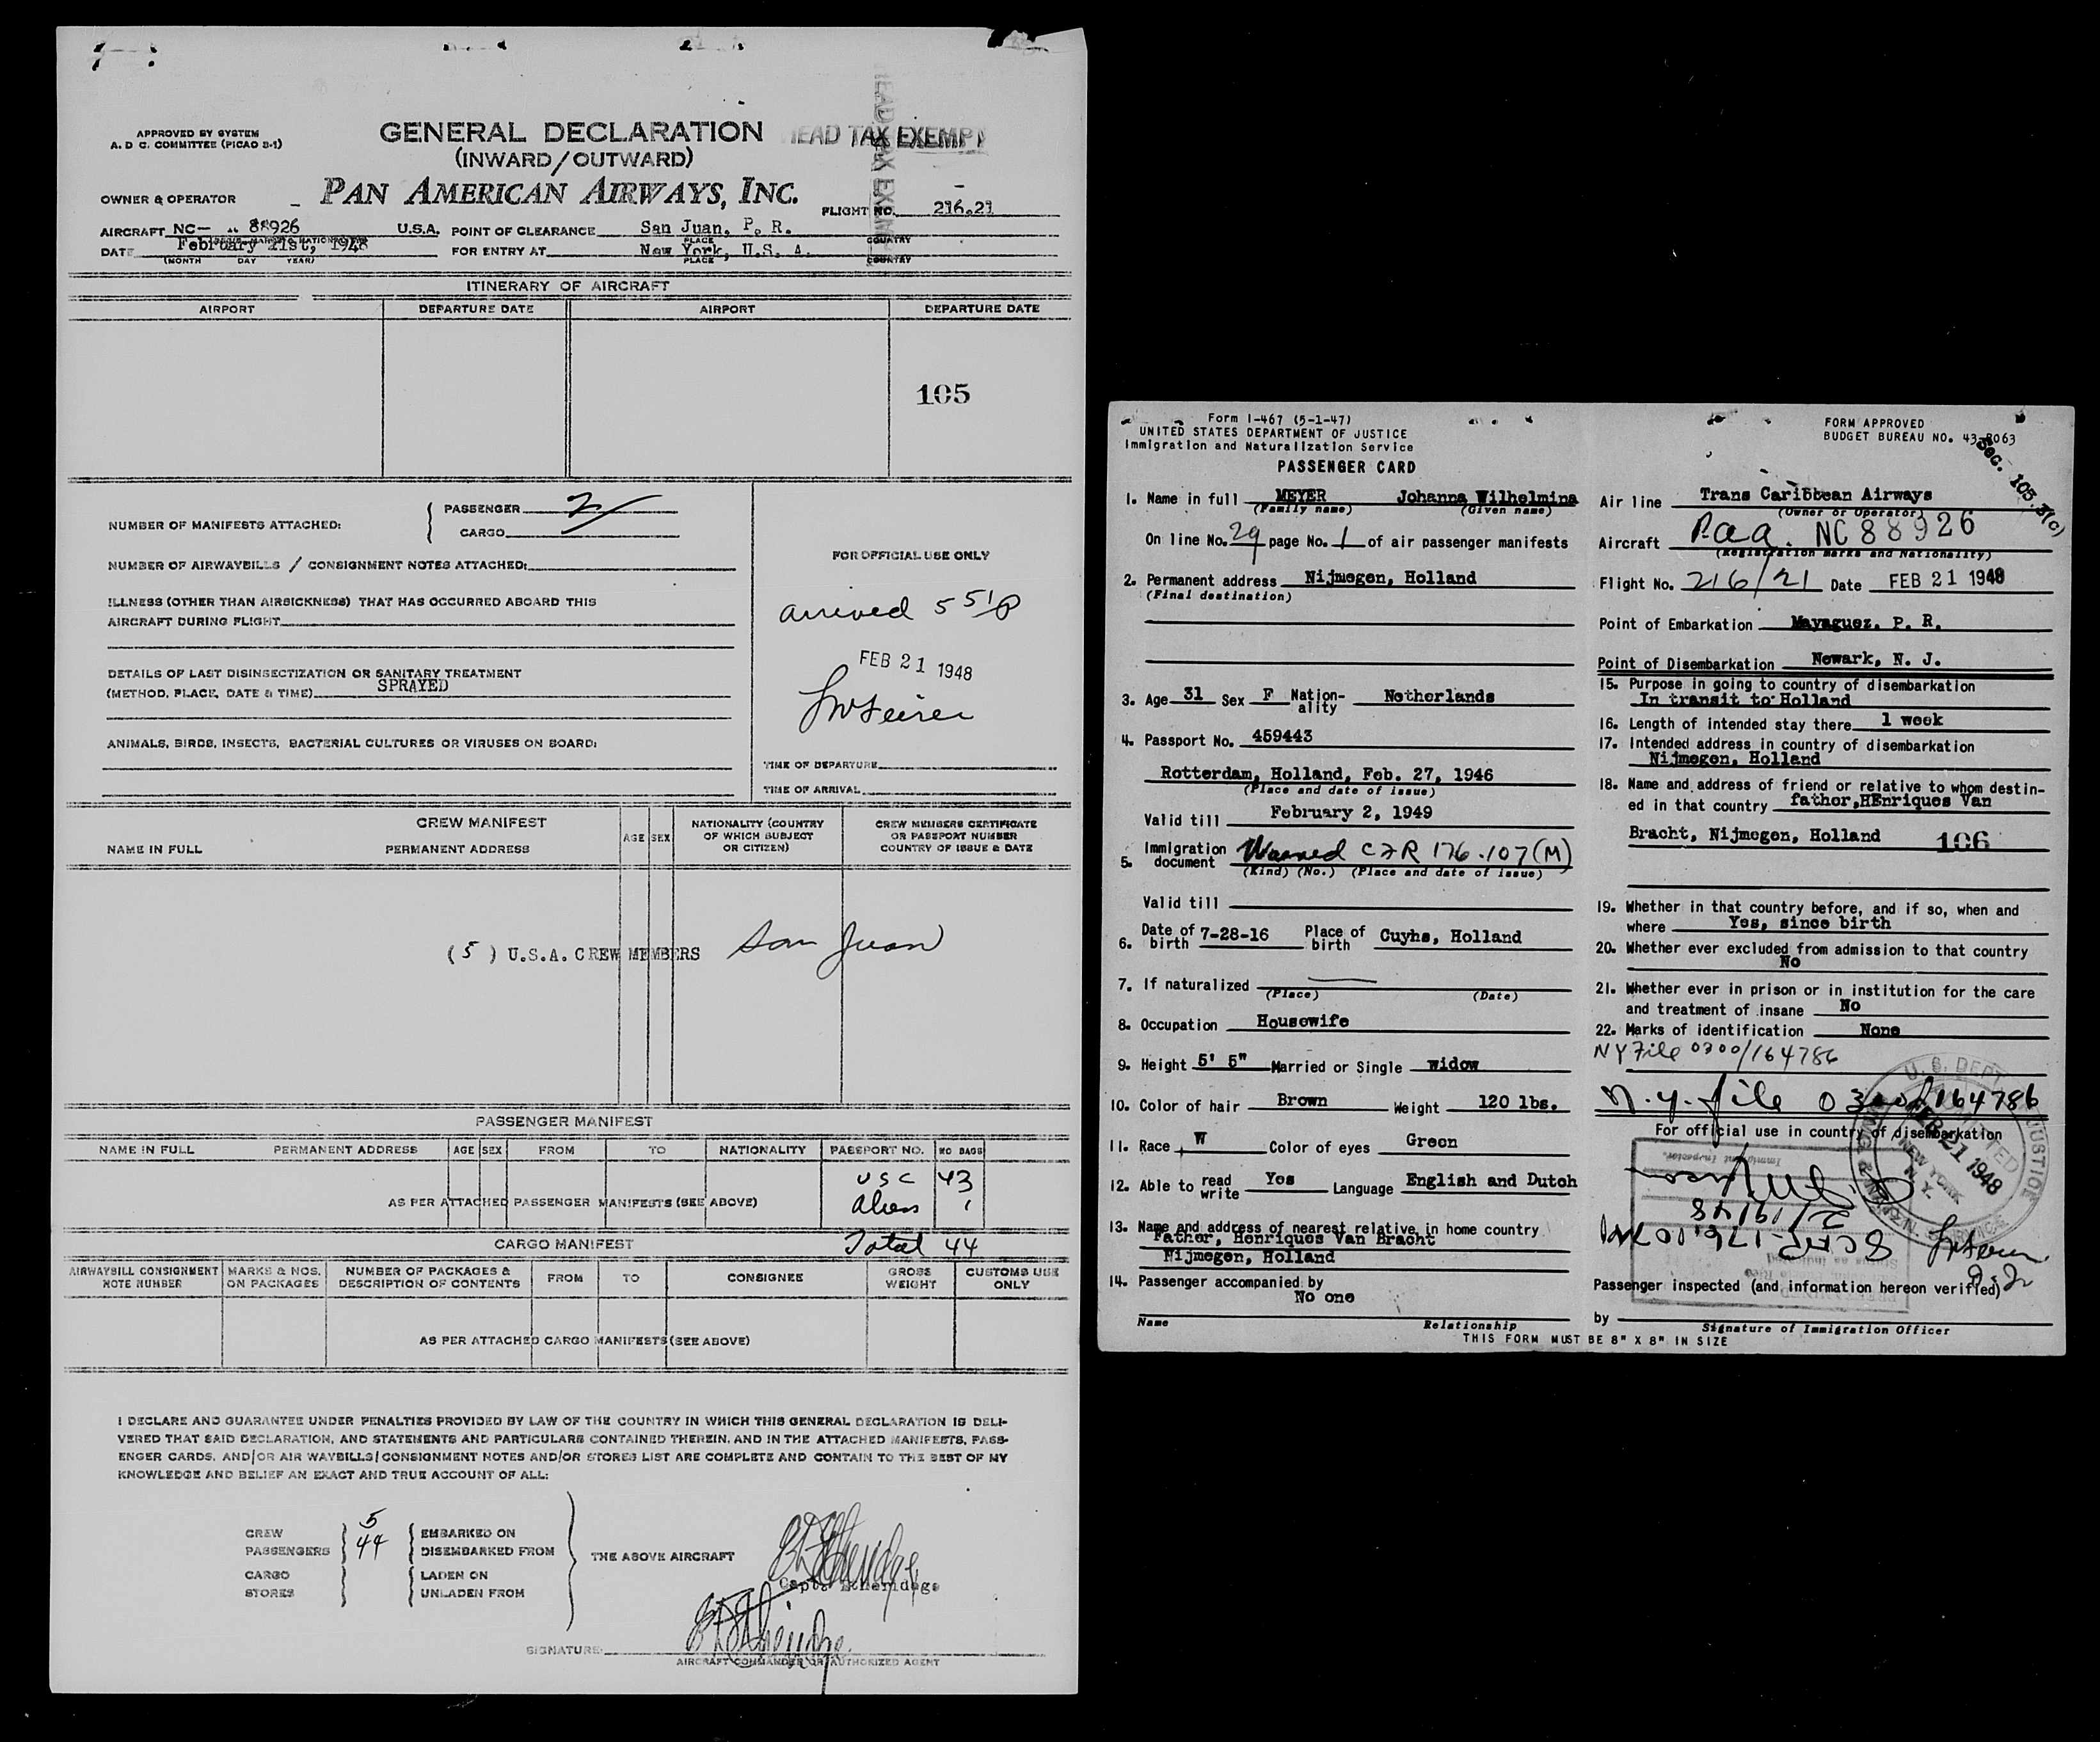 APPROVED BY SYSTEM
A. D C. COMMITTEE (PICAO B-1)
GENERAL DECLARATION
(INWARD/OUTWARD)
HEAD TAX EXEMPT
HEAD TAX EXEMPT
OWNER & OPERATOR
PAN AMERICAN AIRWAYS, INC.
FLIGHT NO. 216.21
AIRCRAFT NC- 88926 U.S.A. POINT OF CLEARANCE San Juan, P. R.
PLACE COUNTRY
DATE February 21st, 1948 FOR ENTRY AT New York, U.S. A.
(MONTH DAY YEAR) PLACE COUNTRY
ITINERARY OF AIRCRAFT
AIRPORT DEPARTURE DATE AIRPORT DEPARTURE DATE
105
NUMBER OF MANIFESTS ATTACHED: PASSENGER 2
CARGO
NUMBER OF AIRWAYBILLS / CONSIGNMENT NOTES ATTACHED:
ILLNESS (OTHER THAN AIRSICKNESS) THAT HAS OCCURRED ABOARD THIS
AIRCRAFT DURING FLIGHT
DETAILS OF LAST DISINSECTIZATION OR SANITARY TREATMENT
(METHOD, PLACE, DATE & TIME) SPRAYED
ANIMALS, BIRDS, INSECTS, BACTERIAL CULTURES OR VIRUSES ON BOARD:
FOR OFFICIAL USE ONLY
arrived 5 51 P
FEB 21 1948
TIME OF DEPARTURE
TIME OF ARRIVAL
CREW MANIFEST
NAME IN FULL PERMANENT ADDRESS AGE SEX
NATIONALITY (COUNTRY
OF WHICH SUBJECT
OR CITIZEN)
CREW MEMBERS CERTIFICATE
OR PASSPORT NUMBER
COUNTRY OF ISSUE & DATE
( 5 ) U.S.A. CREW MEMBERS San Juan
PASSENGER MANIFEST
NAME IN FULL PERMANENT ADDRESS AGE SEX FROM TO NATIONALITY PASSPORT NO. NO BAGS
USC 43
AS PER ATTACHED PASSENGER MANIFESTS (SEE ABOVE) Aliens 1
CARGO MANIFEST Total 44
AIRWAYBILL CONSIGNMENT
NOTE NUMBER
MARKS & NOS.
ON PACKAGES
NUMBER OF PACKAGES &
DESCRIPTION OF CONTENTS
FROM TO CONSIGNEE
GROSS
WEIGHT
CUSTOMS USE
ONLY
AS PER ATTACHED CARGO MANIFESTS (SEE ABOVE)
I DECLARE AND GUARANTEE UNDER PENALTIES PROVIDED BY LAW OF THE COUNTRY IN WHICH THIS GENERAL DECLARATION IS DELI-
VERED THAT SAID DECLARATION, AND STATEMENTS AND PARTICULARS CONTAINED THEREIN, AND IN THE ATTACHED MANIFESTS, PASS-
ENGER CARDS, AND/OR AIR WAYBILLS/CONSIGNMENT NOTES AND/OR STORES LIST ARE COMPLETE AND CONTAIN TO THE BEST OF MY
KNOWLEDGE AND BELIEF AN EXACT AND TRUE ACCOUNT OF ALL:
CREW 5 EMBARKED ON
PASSENGERS 44 DISEMBARKED FROM
THE ABOVE AIRCRAFT
CARGO LADEN ON
STORES UNLADEN FROM
Capt. Etheridge
SIGNATURE:
AIRCRAFT COMMANDER OR AUTHORIZED AGENT
Form I-467 (5-1-47)
UNITED STATES DEPARTMENT OF JUSTICE
Immigration and Naturalization Service
PASSENGER CARD
1. Name in full MEYER Johanna Wilhelmina
(Family name) (Given name)
On line No. 29 page No. 1 of air passenger manifests
2. Permanent address Nijmegen, Holland
(Final destination)
3. Age 31 Sex F Nation-
ality Netherlands
4. Passport No. 459443
Rotterdam, Holland, Feb. 27, 1946
(Place and date of issue)
Valid till February 2, 1949
5. Immigration
document Warned CFR 176.107(M)
(Kind) (No.) (Place and date of issue)
Valid till
6. Date of
birth 7-28-16 Place of
birth Cuyhs, Holland
7. If naturalized
(Place) (Date)
8. Occupation Housewife
9. Height 5' 5" Married or Single widow
10. Color of hair Brown Weight 120 lbs.
11. Race W Color of eyes Green
12. Able to read
write Yes Language English and Dutch
13. Name and address of nearest relative in home country
Father, Henriques Van Bracht
Nijmegen, Holland
14. Passenger accompanied by
No one
Name Relationship
THIS FORM MUST BE 8" X 8" IN SIZE
FORM APPROVED
BUDGET BUREAU NO. 43-R063
Sec. 105.3(c)
Air line Trans Caribbean Airways
(Owner or Operator)
Aircraft Paa. NC 88926
(Registration marks and Nationality)
Flight No. 216/21 Date FEB 21 1948
Point of Embarkation Mayaguez, P. R.
Point of Disembarkation Newark, N. J.
15. Purpose in going to country of disembarkation
In transit to Holland
16. Length of intended stay there 1 week
17. Intended address in country of disembarkation
Nijmegen, Holland
18. Name and address of friend or relative to whom destin-
ed in that country father, HEnriques Van
Bracht, Nijmegen, Holland 106
19. Whether in that country before, and if so, when and
where Yes, since birth
20. Whether ever excluded from admission to that country
No
21. Whether ever in prison or in institution for the care
and treatment of insane No
22. Marks of identification None
NY File 0300/164786
N.Y. file 0300/164786
For official use in country of disembarkation
U. S. DEPT. JUSTICE
ADMITTED
FEB 21 1948
NEW YORK
N. Y.
Immigrant Inspector.
2/19/48
8 CFR-176.107(M)
Passenger inspected (and information hereon verified)
by
Signature of Immigration Officer